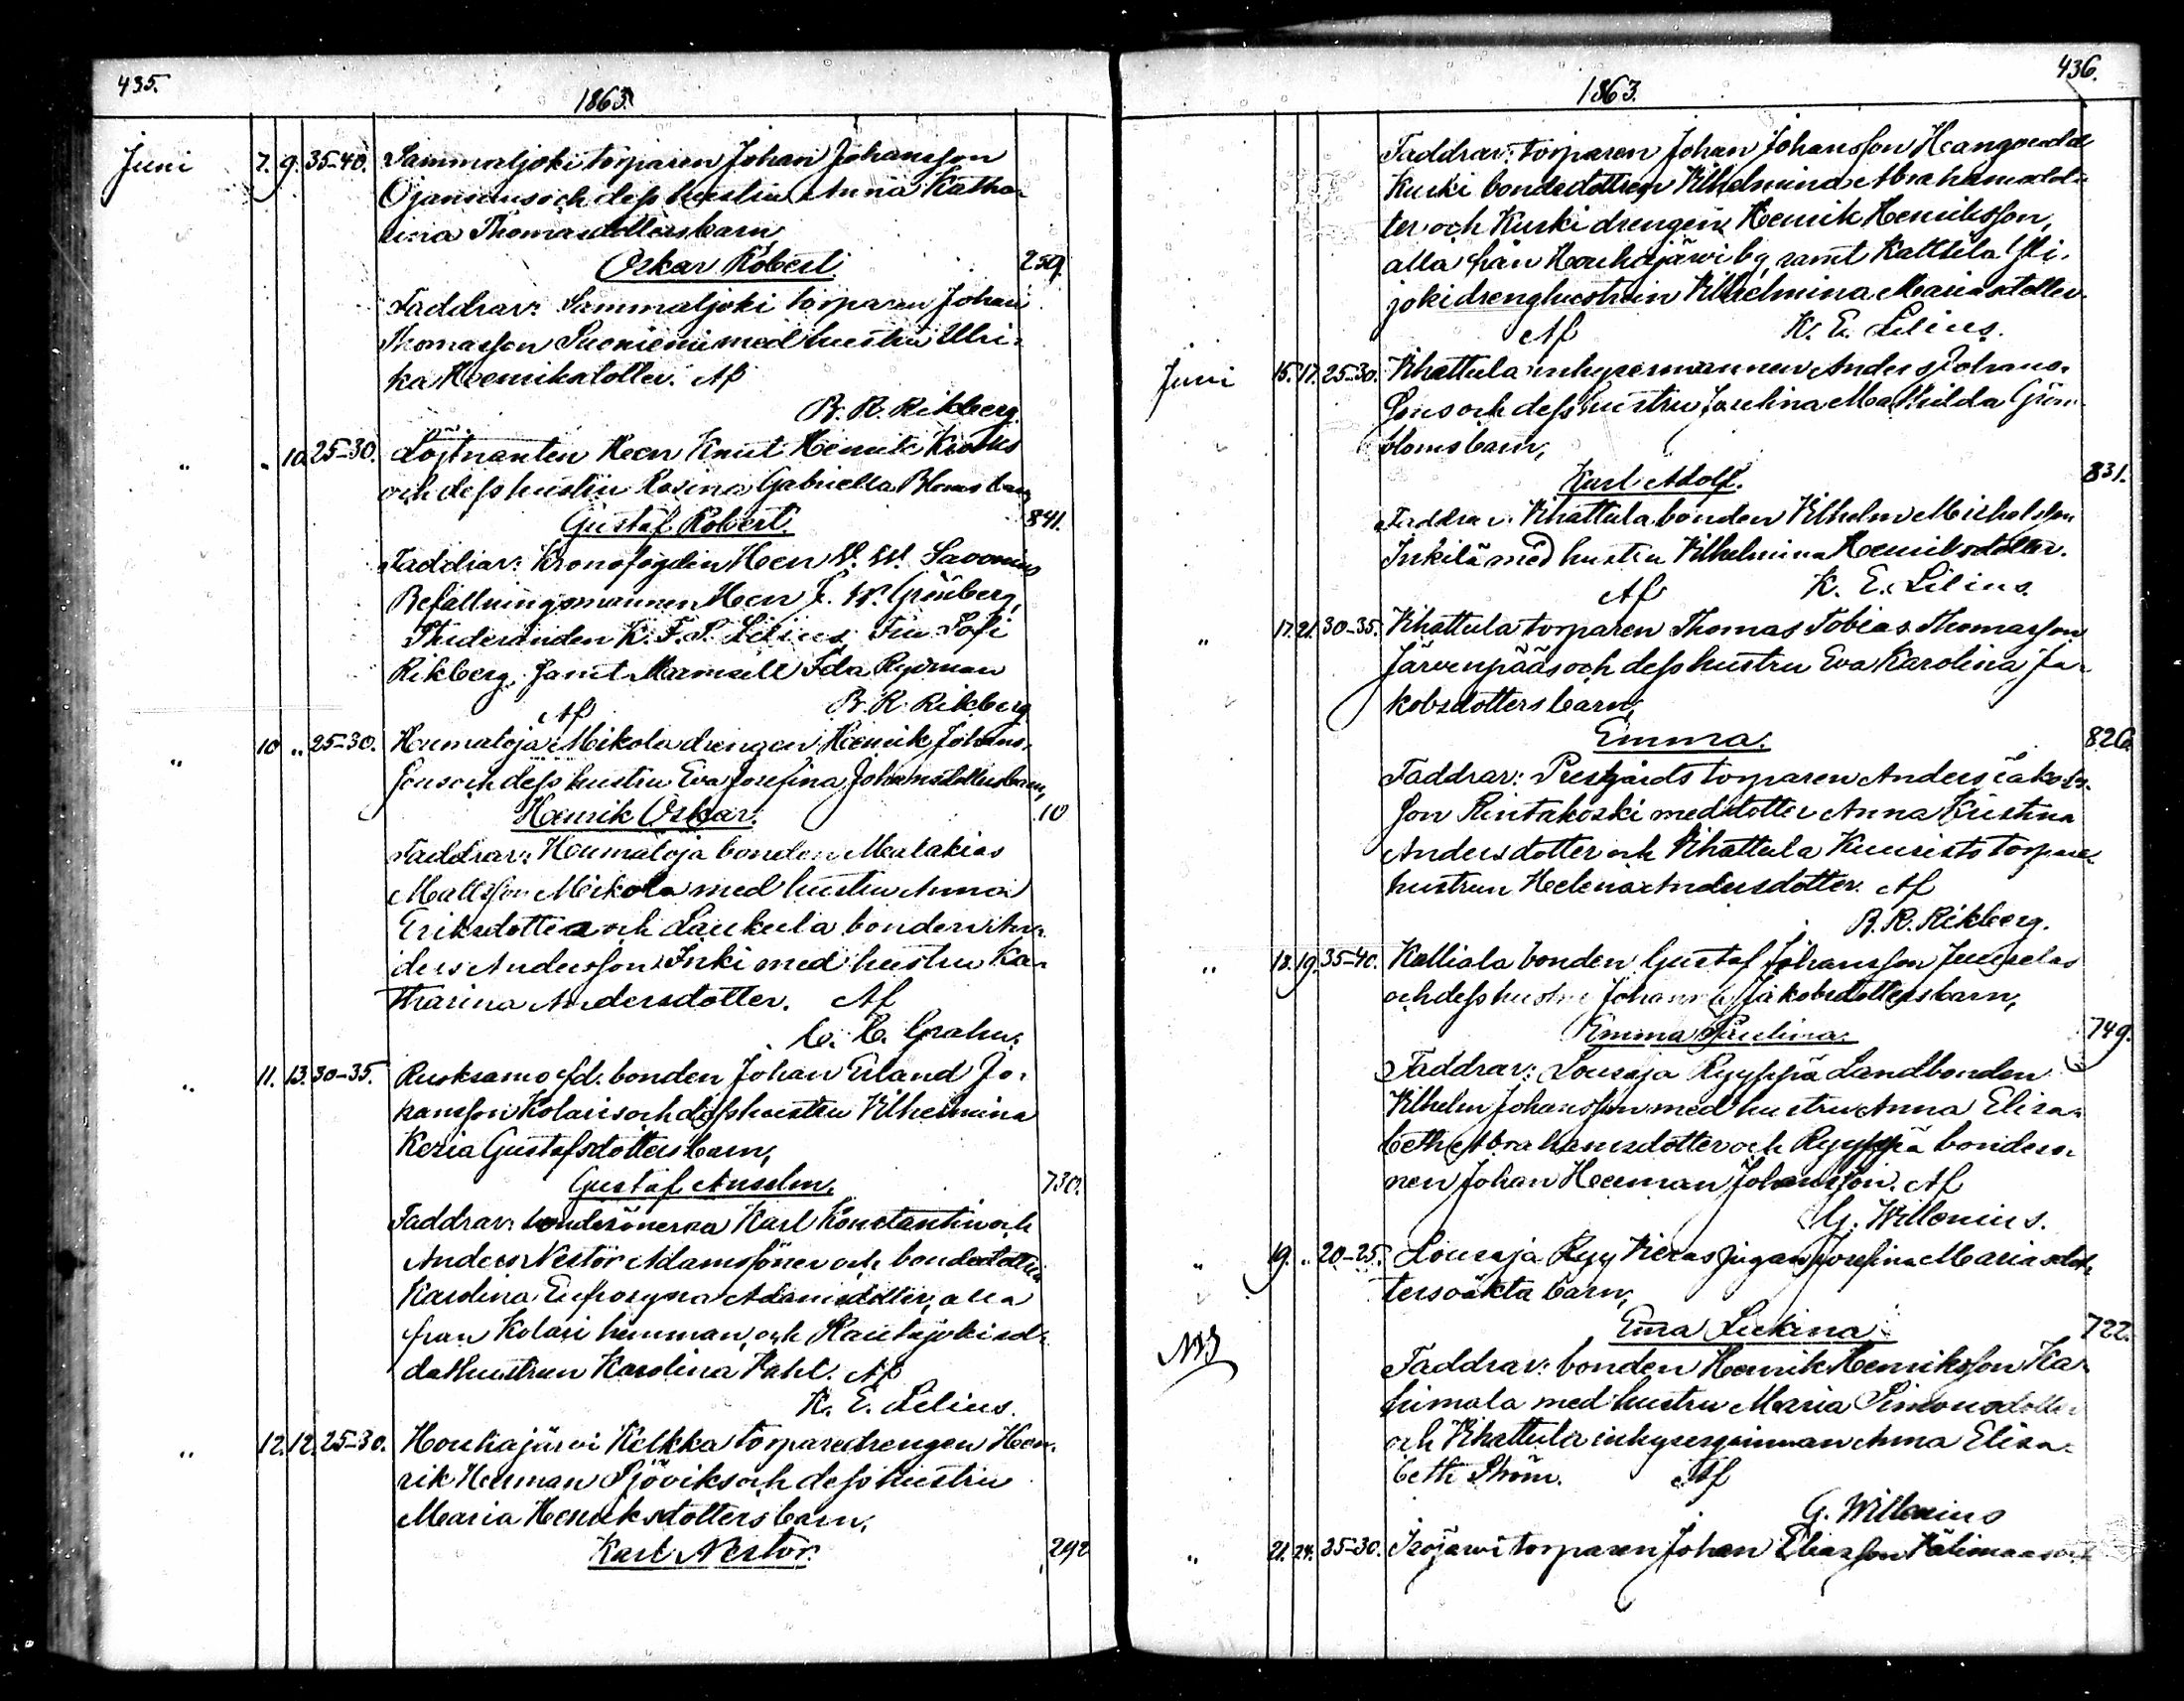 435.
1863.
Juni 7. 9. 35-40. Sammaljoki torparen Johan Johansson
Ojansuus och dess hustru Anna Katha-
rina Thomasdotters barn
Oskar Robert 259.
Faddrar: Sammaljoki torparen Johan
Thomasson Suoniemi med hustru Ulri-
ka Henriksdotter. Af
B. R. Rikberg.
" " 10. 25-30. Löjtnanten Herr Knut Henrik
och dess hustru Rosina Gabriella Bloms barn
Gustaf Robert. 841.
Faddrar: Kronofogden Herr Savonius
Befallningsmannen Herr F. W. Grönberg,
Studeranden K. F. S. Lilius, Fru Sofi
Rikberg, samt Mamsell Ida Rydman
Af B. R. Rikberg
" 10 " 25-30. Houmaloja Mikola drengen Henrik Johans-
sons och dess hustru Eva Josefina Johansdotters barn,
Henrik Oskar. 10
Faddrar: Houmaloja bonden Malakias
Mattsson Mikola med hustru Anna
Eriksdotter och Laukula bonden An-
ders Andersson Inki med hustru Ka-
tharina Andersdotter. Af
C. C. Grahn.
" 11. 13. 30-35. Ruoksamo fd. bonden Johan Erland Jo-
hansson Kolaris och dess hustru Vilhelmina
Keria Gustafsdotters barn,
Gustaf Anselm. 730.
Faddrar: bondesönerna Karl Konstantin och
Anders Nestor Adamssöner och bondedottren
Karolina Eufrosyna Adamsdotter, alla
från Kolari hemman, och Rautajoki sol-
dathustrun Karolina Fahl. Af
K. E. Lilius.
" 12. 12. 25-30. Houhajärvi Kelkka torparedrengen Hen-
rik Herman Sjöviks och dess hustru
Maria Henriksdotters barn,
Karl Nestor. 292
436.
1863.
Faddrar: torparen Johan Johansson
Kurki bondedottren Vilhelmina Abrahamsdot-
ter och Kurki drengen Henrik Henriksson,
alla från Houhajärvi by, samt Kattila Yli-
joki drenghustrun Vilhelmina Mariasdotter.
Af K. E. Lilius.
Juni 15. 17. 25-30. Vihattula inhysesmannen Anders Johans-
sons och dess hustru Mathilda Grön-
bloms barn,
Karl Adolf. 831.
Faddrar: Vihattula bonden Vilhelm Michelsson
Inkilä med hustru Vilhelmina Henriksdotter.
Af K. E. Lilius.
" 17. 21. 30-35. Vihattula torparen Thomas Tobias Thomasson
Järvenpääs och dess hustru Eva Karolina Ja-
kobsdotters barn,
Emma. 826.
Faddrar: Prestgårds torparen Anders Jakobs-
son Rintakoski med dotter Anna Kristina
Andersdotter och Vihattula Kuuristo torpare-
hustrun Helena Andersdotter. Af
B. R. Rikberg.
" 18. 19. 35-40. Kalliala bonden Gustaf Johansson Junnilas
och dess hustru Johanna Jakobsdotters barn,
Emma Paulina. 749.
Faddrar: Lousaja Ryyppä Landbonden
Vilhelm Johansson med hustru Anna Elisa-
beth Abrahamsdotter och Ryyppä bondeso-
nen Johan Herman Johansson. Af
G. Willenius.
" 19. " 20-25. Lousaja Ryy pigan Josefina Mariasdot-
ters oäkta barn,
Erna Lukina 722.
NB
Faddrar: bonden Henrik Henriksson Ka-
himala med hustru Maria Simonsdotter
och Vihattula inhysesqvinnan Anna Elisa-
beth Ström. Af
G. Willenius
" 21. 24. 25-30. Isojärvi torparen Johan Eliasson Välimaas och